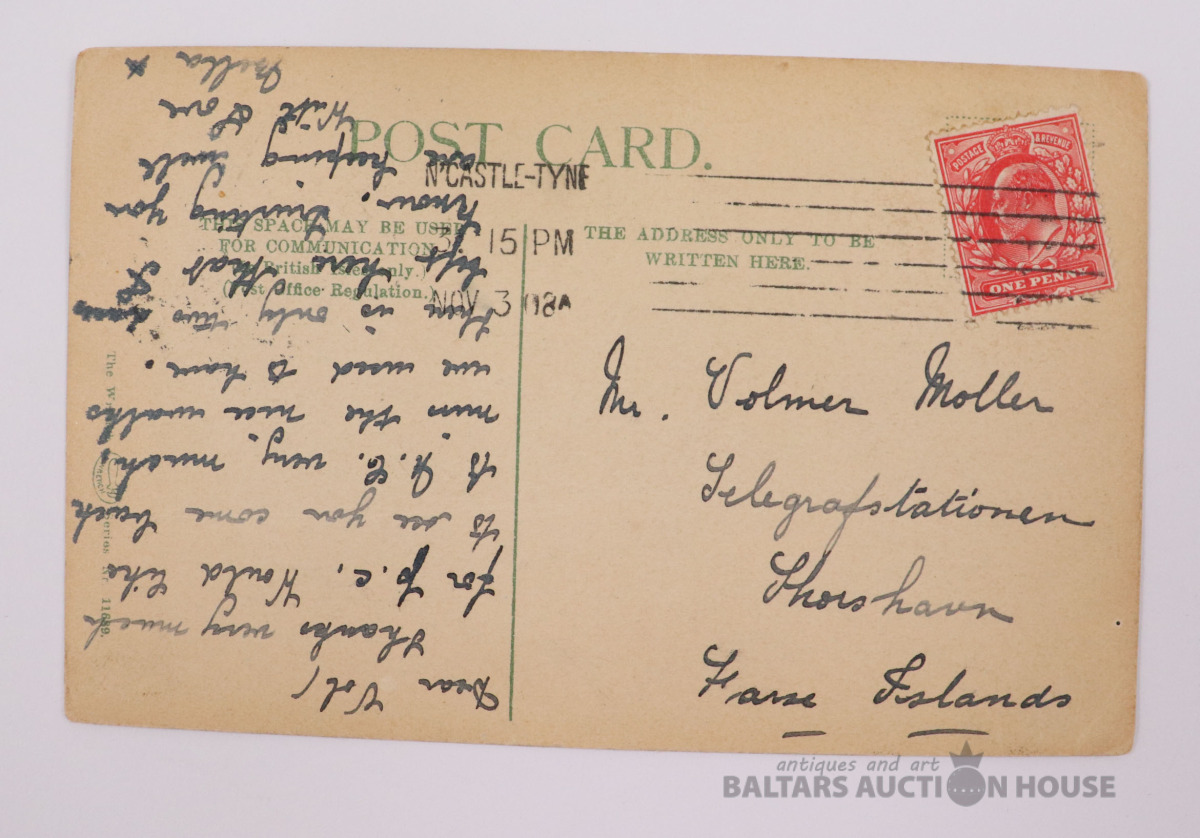 POST CARD.
THIS SPACE MAY BE USED
FOR COMMUNICATION
(British Isles only.)
(Post Office Regulation.)
THE ADDRESS ONLY TO BE
WRITTEN HERE.
N'CASTLE-TYNE
15 PM
NOV 3 08
POSTAGE & REVENUE
ONE PENNY
Mr. Volmer Moller
Telegrafstationen
Thorshavn
Faroe Islands
Dear Vol,
Thanks very much
for p.c. Would like
to see you come back
to N.C. very much,
miss the nice walks
we used to have.
there is only two
left here that I
know. Trusting you
are keeping well
With Love
x
The
Series
11689.
antiques and art
BALTARS AUCTION HOUSE